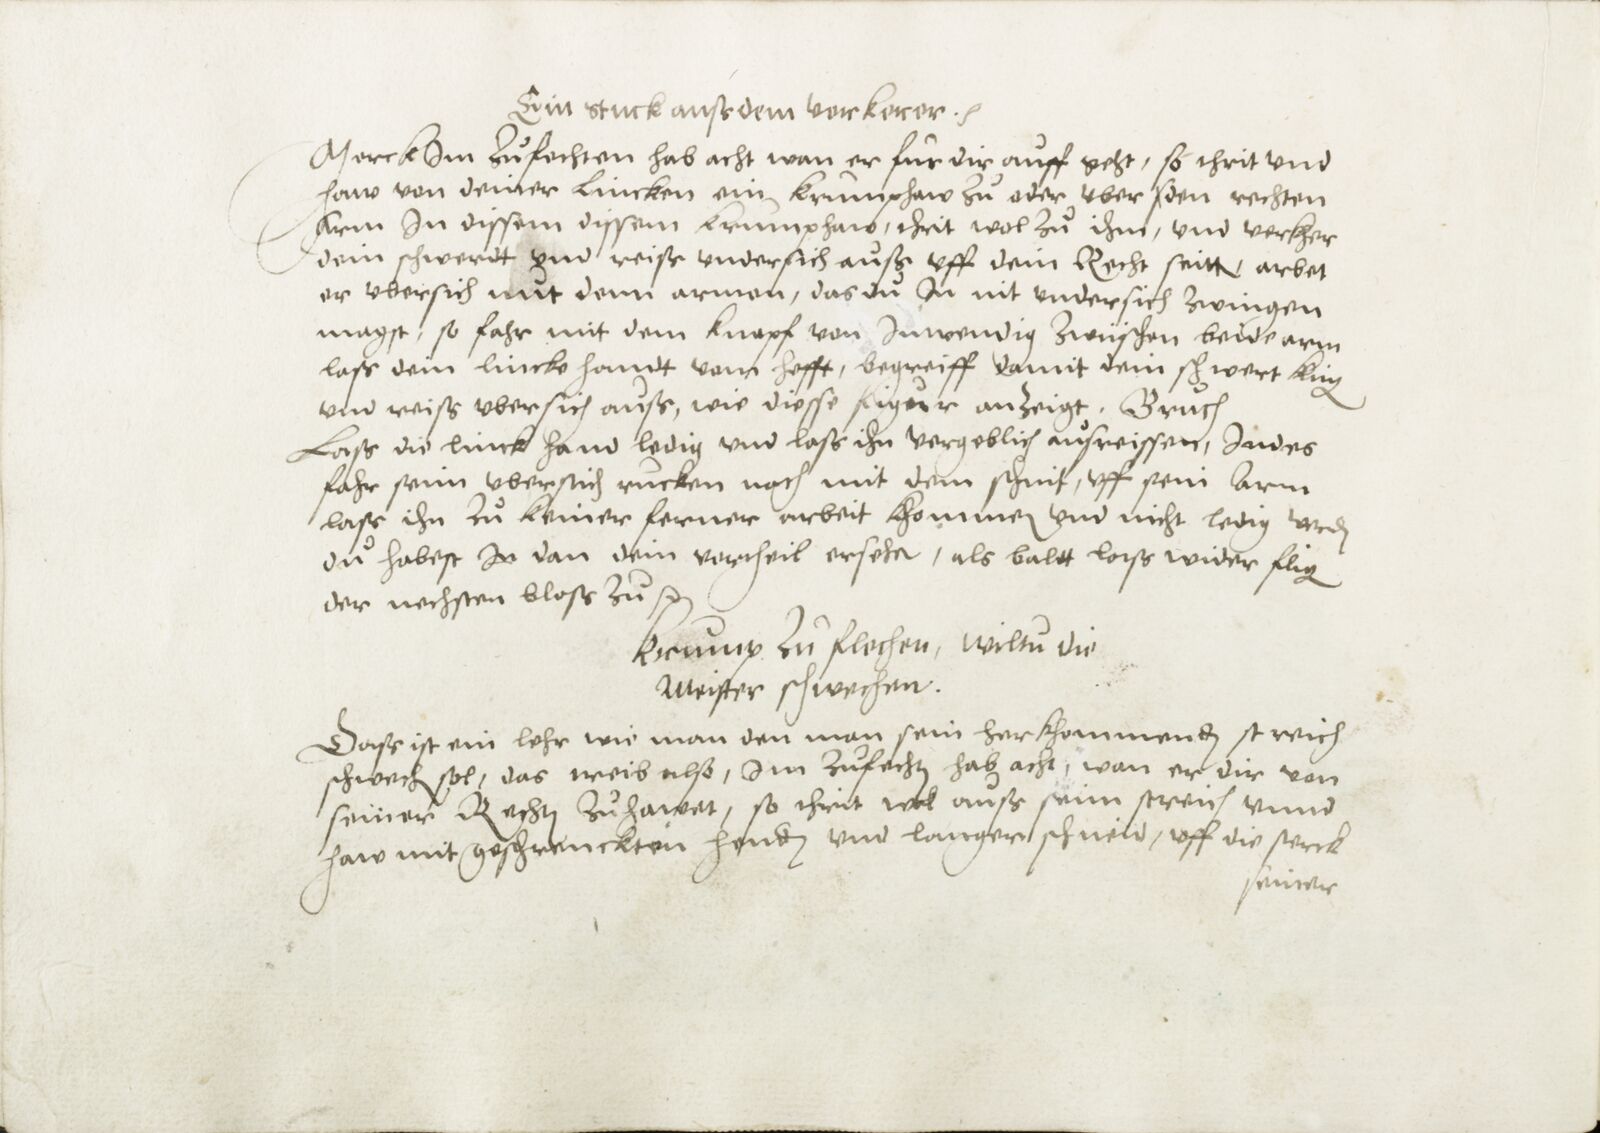 Ein stuck auß dem verkerer.
Merck Im Zufechten hab acht wan er für dir auff geht, so thrit vnd
haw von deiner Lincken ein krumphaw Zu oder vber den rechten
Arm In dissem dissem krumphaw, thrit wol Zu ihm, vnd verkher
dein schwerdt vnd reiß vndersich auß vff dein Recht seitt, arbet
er vbersich mit denn armen, das du In nit vndersich zwingen
magst, so fahr mit dem knopf von Inwendig zwischen beide arm
lass dein lincke handt vom hefft, begreiff damit dein schwert kling
vnd reiß vbersich auß, wie diesse figeur anzeigt. Bruch
Lass die linck hand ledig vnd lass ihn vergeblich ausreissen, Indes
fahr seim vbersich rucken nach mit dem schnit, vff sein Arm
lass ihn zu keiner ferner arbeit khommen vnd nicht ledig werden
du habest In dan dein vortheil ersehen, als baltt loiß wider flig
der nechsten bloß zu
Krump zu flechen, wiltu die
Meister schwechen.
Daß ist ein lehr wie man den man sein herkhommenden streich
schwechen sol, das treib also, Im Zufechten hab acht, wan er dir von
seiner Rechten zuhawet, so thrit wol auß seim streich vnnd
haw mit geschrenckten henden vnd langer schneid, vff die sterck
seiner